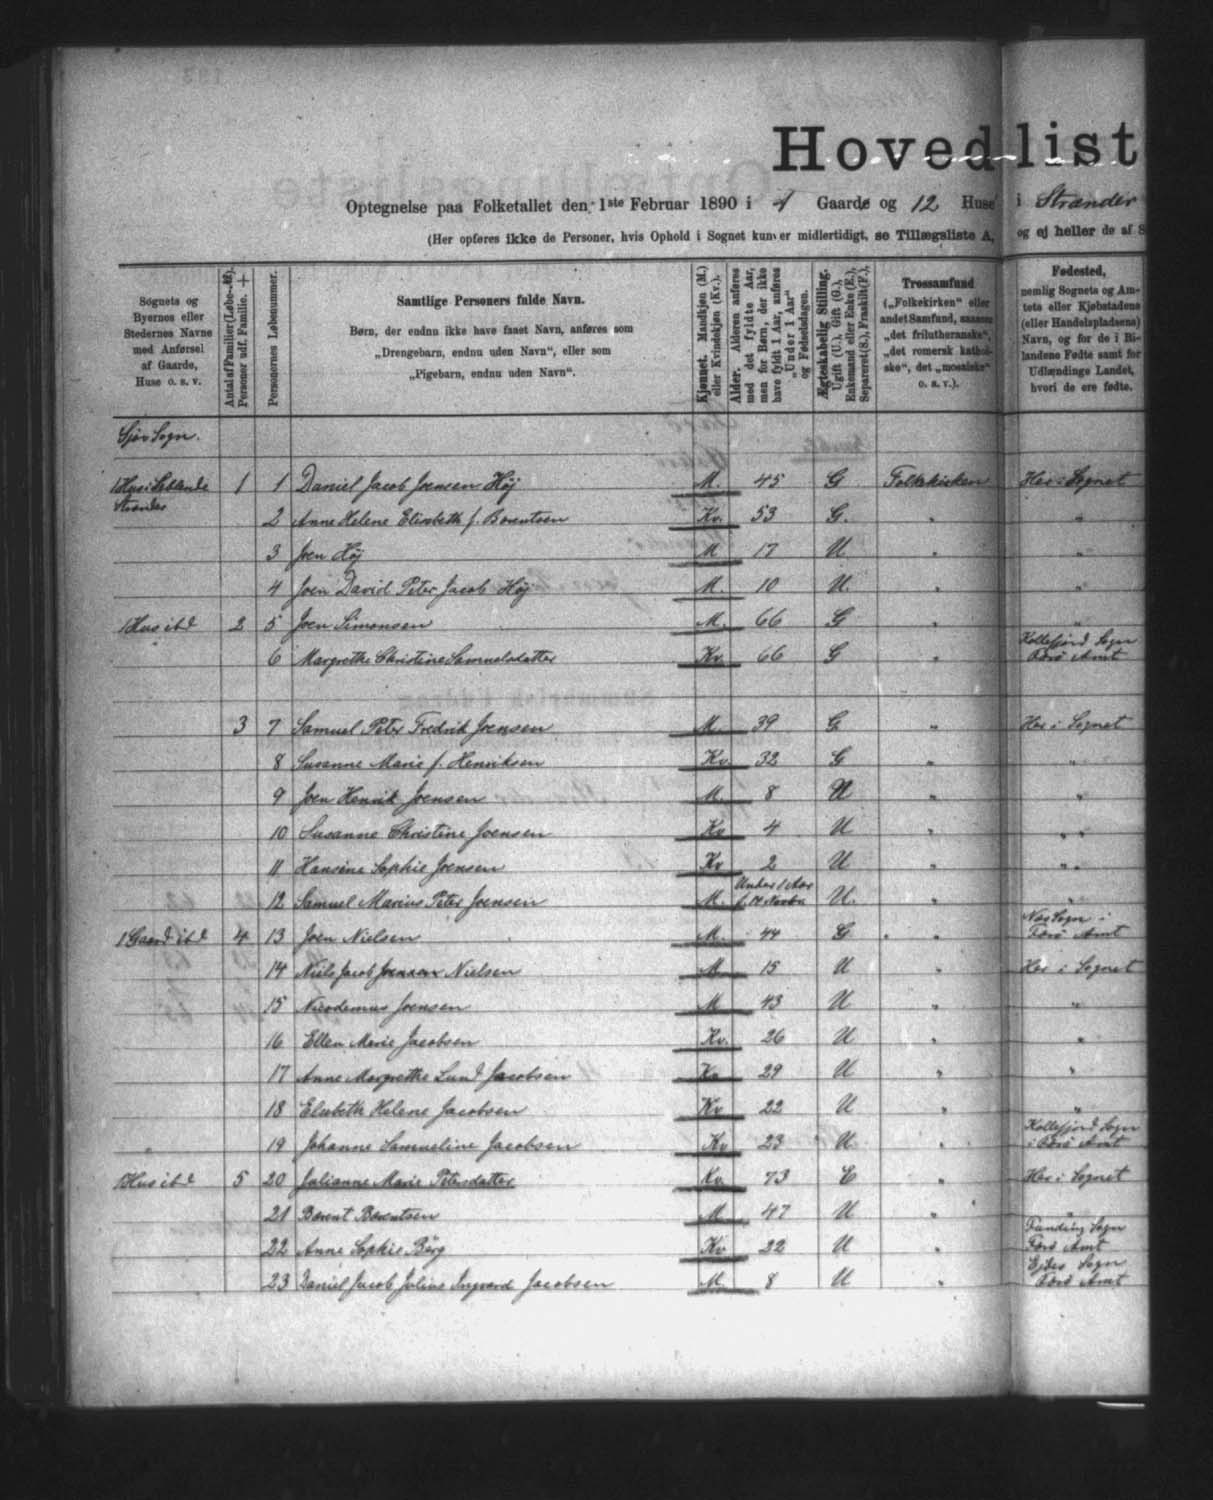 Hovedlist
Optegnelse paa Folketallet den 1ste Februar 1890 i 1 Gaarde og 12 Huse i Strænder
(Her opføres ikke de Personer, hvis Ophold i Sognet kun er midlertidigt, se Tillægsliste A, og ej heller de af S
Sognets og
Byernes eller
Stedernes Navne
med Anførsel
af Gaarde,
Huse o. s. v.
Antal af Familier (Løbe-№).
Personer udf. Familie. +
Personernes Løbenummer.
Samtlige Personers fulde Navn.
Børn, der endnu ikke have faaet Navn, anføres som
„Drengebarn, endnu uden Navn“, eller som
„Pigebarn, endnu uden Navn“.
Kjønnet. Mandkjøn (M.)
eller Kvindekjøn (Kv.).
Alder. Alderen anføres
med det fyldte Aar,
men for Børn, der ikke
have fyldt 1 Aar, anføres
„Under 1 Aar“
og Fødselsdagen.
Ægteskabelig Stilling.
Ugift (U.), Gift (G.),
Enkemand eller Enke (E.),
Separeret (S.), Fraskilt (F.),
Trossamfund
(„Folkekirken“ eller
andet Samfund, saasom
„det frilutheranske“,
„det romersk kathol-
ske“, det „mosaiske“
o. s. v.).
Fødested,
nemlig Sognets og Am-
tets eller Kjøbstadens
(eller Handelspladsens)
Navn, og for de i Bi-
landene Fødte samt for
Udlændinge Landet,
hvori de ere fødte.
Sjov Sogn.
1 Hus i 1 1 Daniel Jacob Joensen Höj M. 45 G Folkekirken Her i Sognet
Strænder
2 Anne Helene Elisabeth f. Berentsen Kv. 53 G. " "
3 Joen Höj M 17 U " "
4 Joen David Peter Jacob Höj M. 10 U. " "
1 Hus ibd 2 5 Joen Simonsen M. 66 G " "
6 Margrethe Christine Samuelsdatter Kv 66 G " Kollefjord Sogn
Færö Amt
3 7 Samuel Peter Fredrik Joensen M. 39 G " Her i Sognet
8 Susanne Marie f. Henriksen Kv. 32 G " "
9 Joen Henrik Joensen M. 8 U " "
10 Susanne Christine Joensen Kv 4 U " "
11 Hansine Sophie Joensen Kv 2 U " "
12 Samuel Marius Peter Joensen M. Under 1 Aar U. " "
1 Gaard ibd 4 13 Joen Nielsen M. 44 G " Næs Sogn i
Færö Amt
14 Niels Jacob Joensen Nielsen M 15 U " Her i Sognet
15 Nicodemus Joensen M 43 U " "
16 Ellen Marie Jacobsen Kv. 26 U " "
17 Anne Margrethe Lund Jacobsen Kv 29 U " "
18 Elsebeth Helene Jacobsen Kv 22 U " "
19 Johanne Samueline Jacobsen Kv 23 U " Kollefjord Sogn
i Færö Amt
1 Hus ibd 5 20 Julianne Marie Petersdatter Kv 73 E " Her i Sognet
21 Berent Berentsen M 47 U " "
22 Anne Sophie Berg Kv 22 U " Funding Sogn
Færö Amt
23 Daniel Jacob Julius Ingvard Jacobsen M. 8 U " Ejdes Sogn
Færö Amt